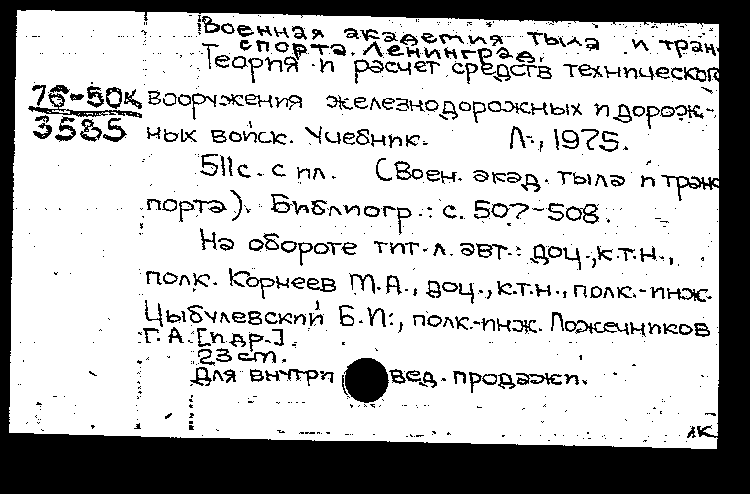 Военная академия тыла и тран-
спорта. Ленинград.
Теория и расчет средств технического
76-50к вооружения железнодорожных и дорож-
3585 ных войск. Учебник. Л., 1975.
511с. с ил. (Воен. акад. тыла и транс
порта). Библиогр.: с. 507-508.
На обороте тит. л. авт.: доц., к.т.н.,
полк. Корнеев М.А., доц., к.т.н., полк.-инж.
Цыбулевский Б.И., полк.-инж. Ложечников
Г.А. [и др.].
23 см.
Для внутри вед. продажи.